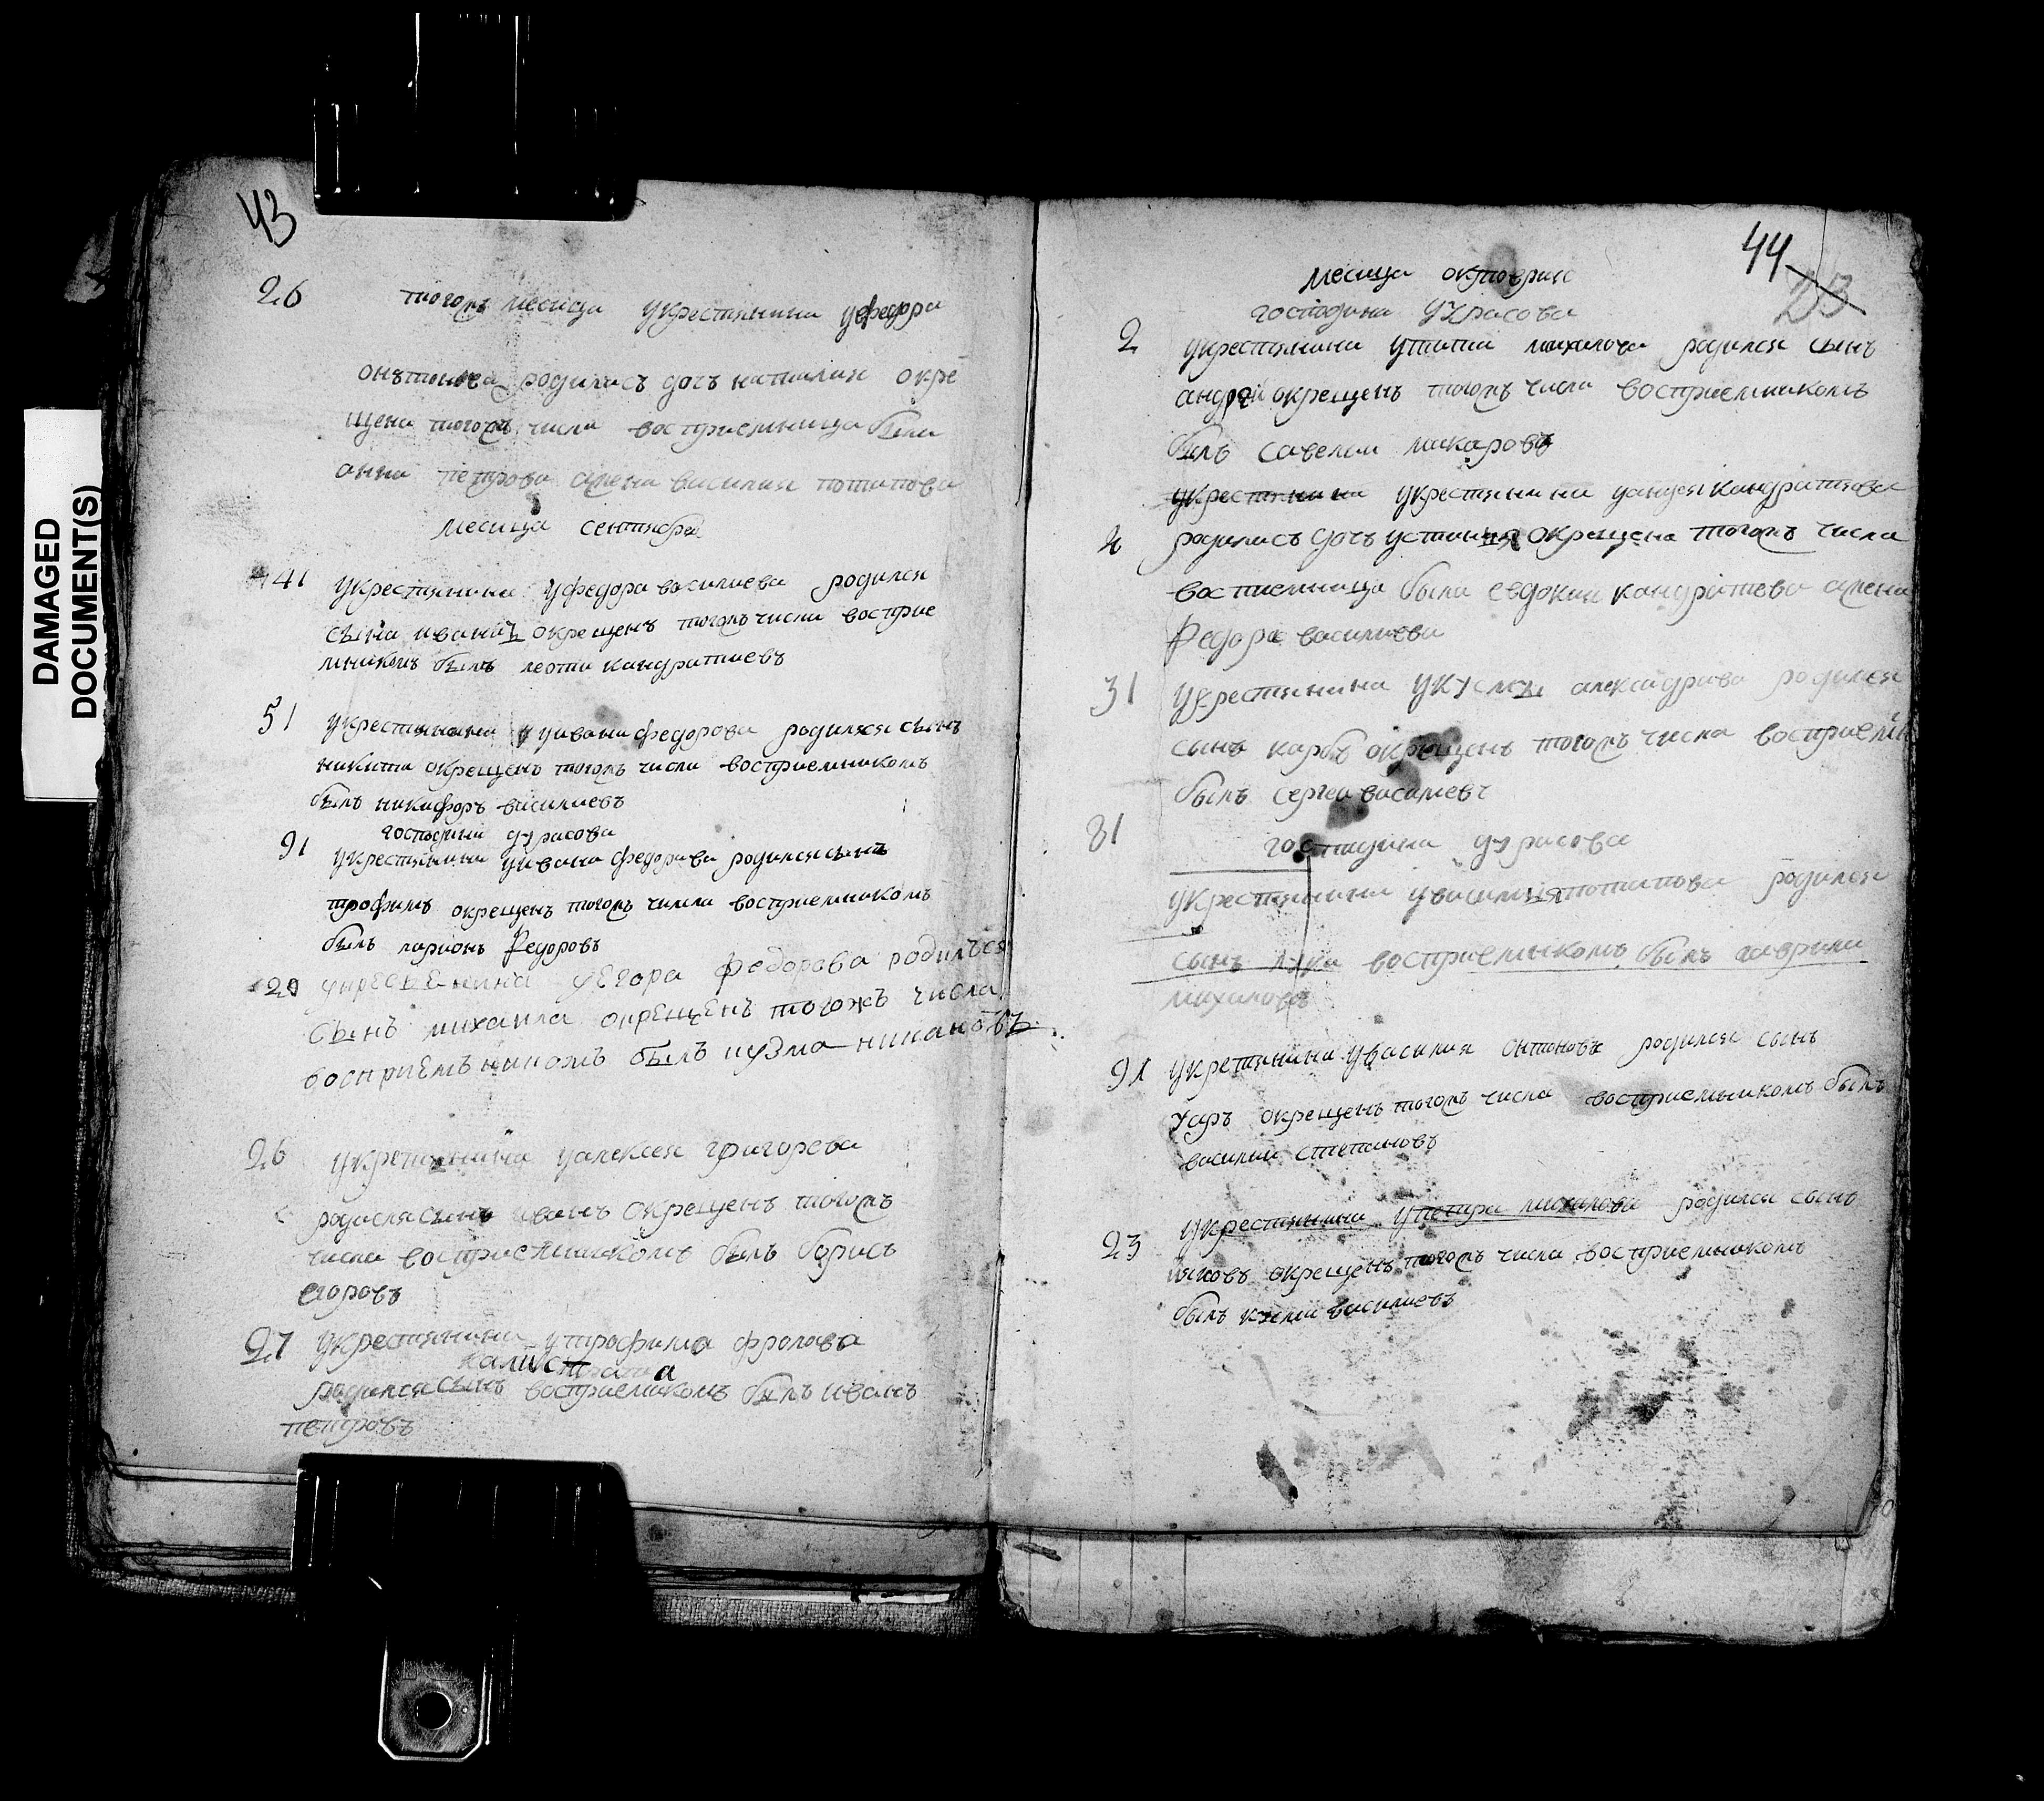 DAMAGED
DOCUMENT(S)
43
26 тогожъ месяца укрестянина уфедора
онътонова родилась дочъ наталия окре
щена тогожъ числа восприемница была
анна петрова жена василия потапова
месяца сентебра
41 укрестянина уфедора василиева родился
сына иванъ окрещенъ тогожъ числа восприе
мникомъ былъ леоти кандратиевъ
51 укрестянина уивана федорова родился сынъ
никита окрещенъ тогожъ числа восприемникомъ
былъ никифоръ василиевъ
господина дурасова
91 укрестянина уивана федорава родился сынъ
трофимъ окрещенъ тогожъ числа восприемникомъ
былъ ларионъ Федоровъ
20 укресьенина уЕгора федорова родилъся
сынъ михаила окрещенъ тогожъ числа
восприемъникомъ былъ кузма никановъ
26 укретянина уалексея григорева
родисля сынъ иванъ окрещенъ тогожъ
числа восприемникомъ былъ борисъ
егоровъ
27 укрестянина утрофима фролова
калистрата
родился сынъ восприемникомъ былъ иванъ
петровъ
44
23
месяца октоврия
господина дурасова
2 укрестянина употапа михалова родился сынъ
андрей окрещенъ тогожъ числа восприемникомъ
былъ савелии макаровъ
укрестянина укрестянина уандея кандратиова
4 родилась дочъ устиния окрещена тогожъ числа
востиемница была евдокия кандратева жена
Федора василиева
31 укрестянина укусмы александрава родился
сынъ карбъ окрещенъ тогожъ числа восприемн
былъ сергеи василиевъ
81 господина дурасова
укрестянина увасилия потапова родился
сынъ лука восприемникомъ былъ гаврила
михалова
91 укретянина увасилия онтонова родился сынъ
уаръ окрещенъ тогожъ числа восприемникомъ былъ
василии степановъ
23 укрестянина упетра михалова родился сынъ
ияковъ окрещенъ тогожъ числа восприемникомъ
былъ василиевъ